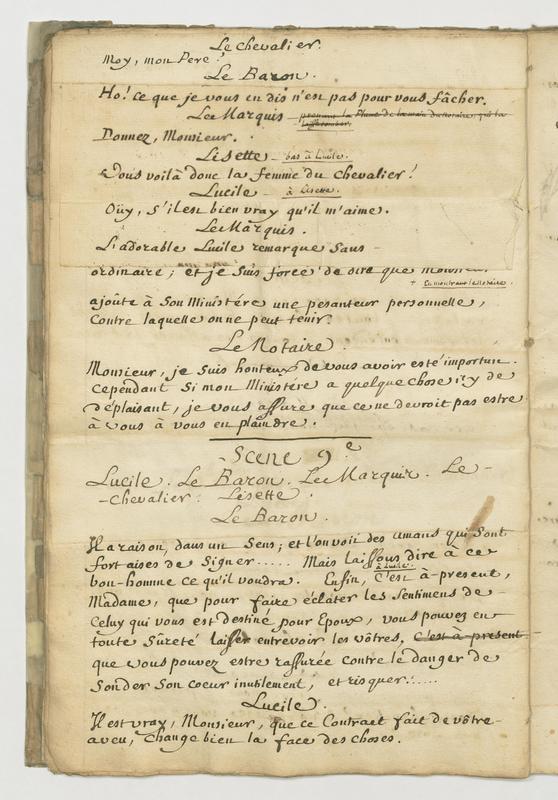 Le Chevalier.
Moy, mon Pere?
Le Baron.
Ho! ce que je vous en dis n'est pas pour vous fâcher.
Le Marquis – prenant la Plume de la main du Notaire, qui la
laisse tomber.
Donnez, Monsieur.
Lisette – bas à Lucile.
Vous voilà donc la femme du Chevalier!
Lucile – à Lisette.
Oüy, s'il est bien vray qu'il m'aime.
Le Marquis.
L'adorable Lucile remarque sans –
ordinaire; et je suis forcé de dire que
+ En montrant le Notaire.
ajoûte à son Ministére une pesanteur personnelle,
contre laquelle on ne peut tenir.
Le Notaire.
Monsieur, je suis honteux de vous avoir esté importun.
Cependant si mon Ministére a quelque chose icy de
déplaisant, je vous assure que ce ne devroit pas estre
à vous à vous en plaindre.
Scene 9e
Lucile. Le Baron. Le Marquis. Le –
– Chevalier. Lisette.
Le Baron.
Il a raison, dans un sens; et l'on voit des amans qui sont
fort aises de signer...... Mais laissons dire à ce
à Lucile.
bon-homme ce qu'il voudra. Enfin, C'est à-present,
Madame, que pour faire éclater les sentimens de –
Celuy qui vous est destiné pour Epoux, vous pouvez en
toute sûreté laisser entrevoir les vôtres, C'est à present
que vous pouvez estre rassurée contre le danger de
sonder son coeur inutilement, et risquer......
Lucile.
Il est vray, Monsieur, que ce Contract fait de vôtre –
aveu, change bien la face des choses.